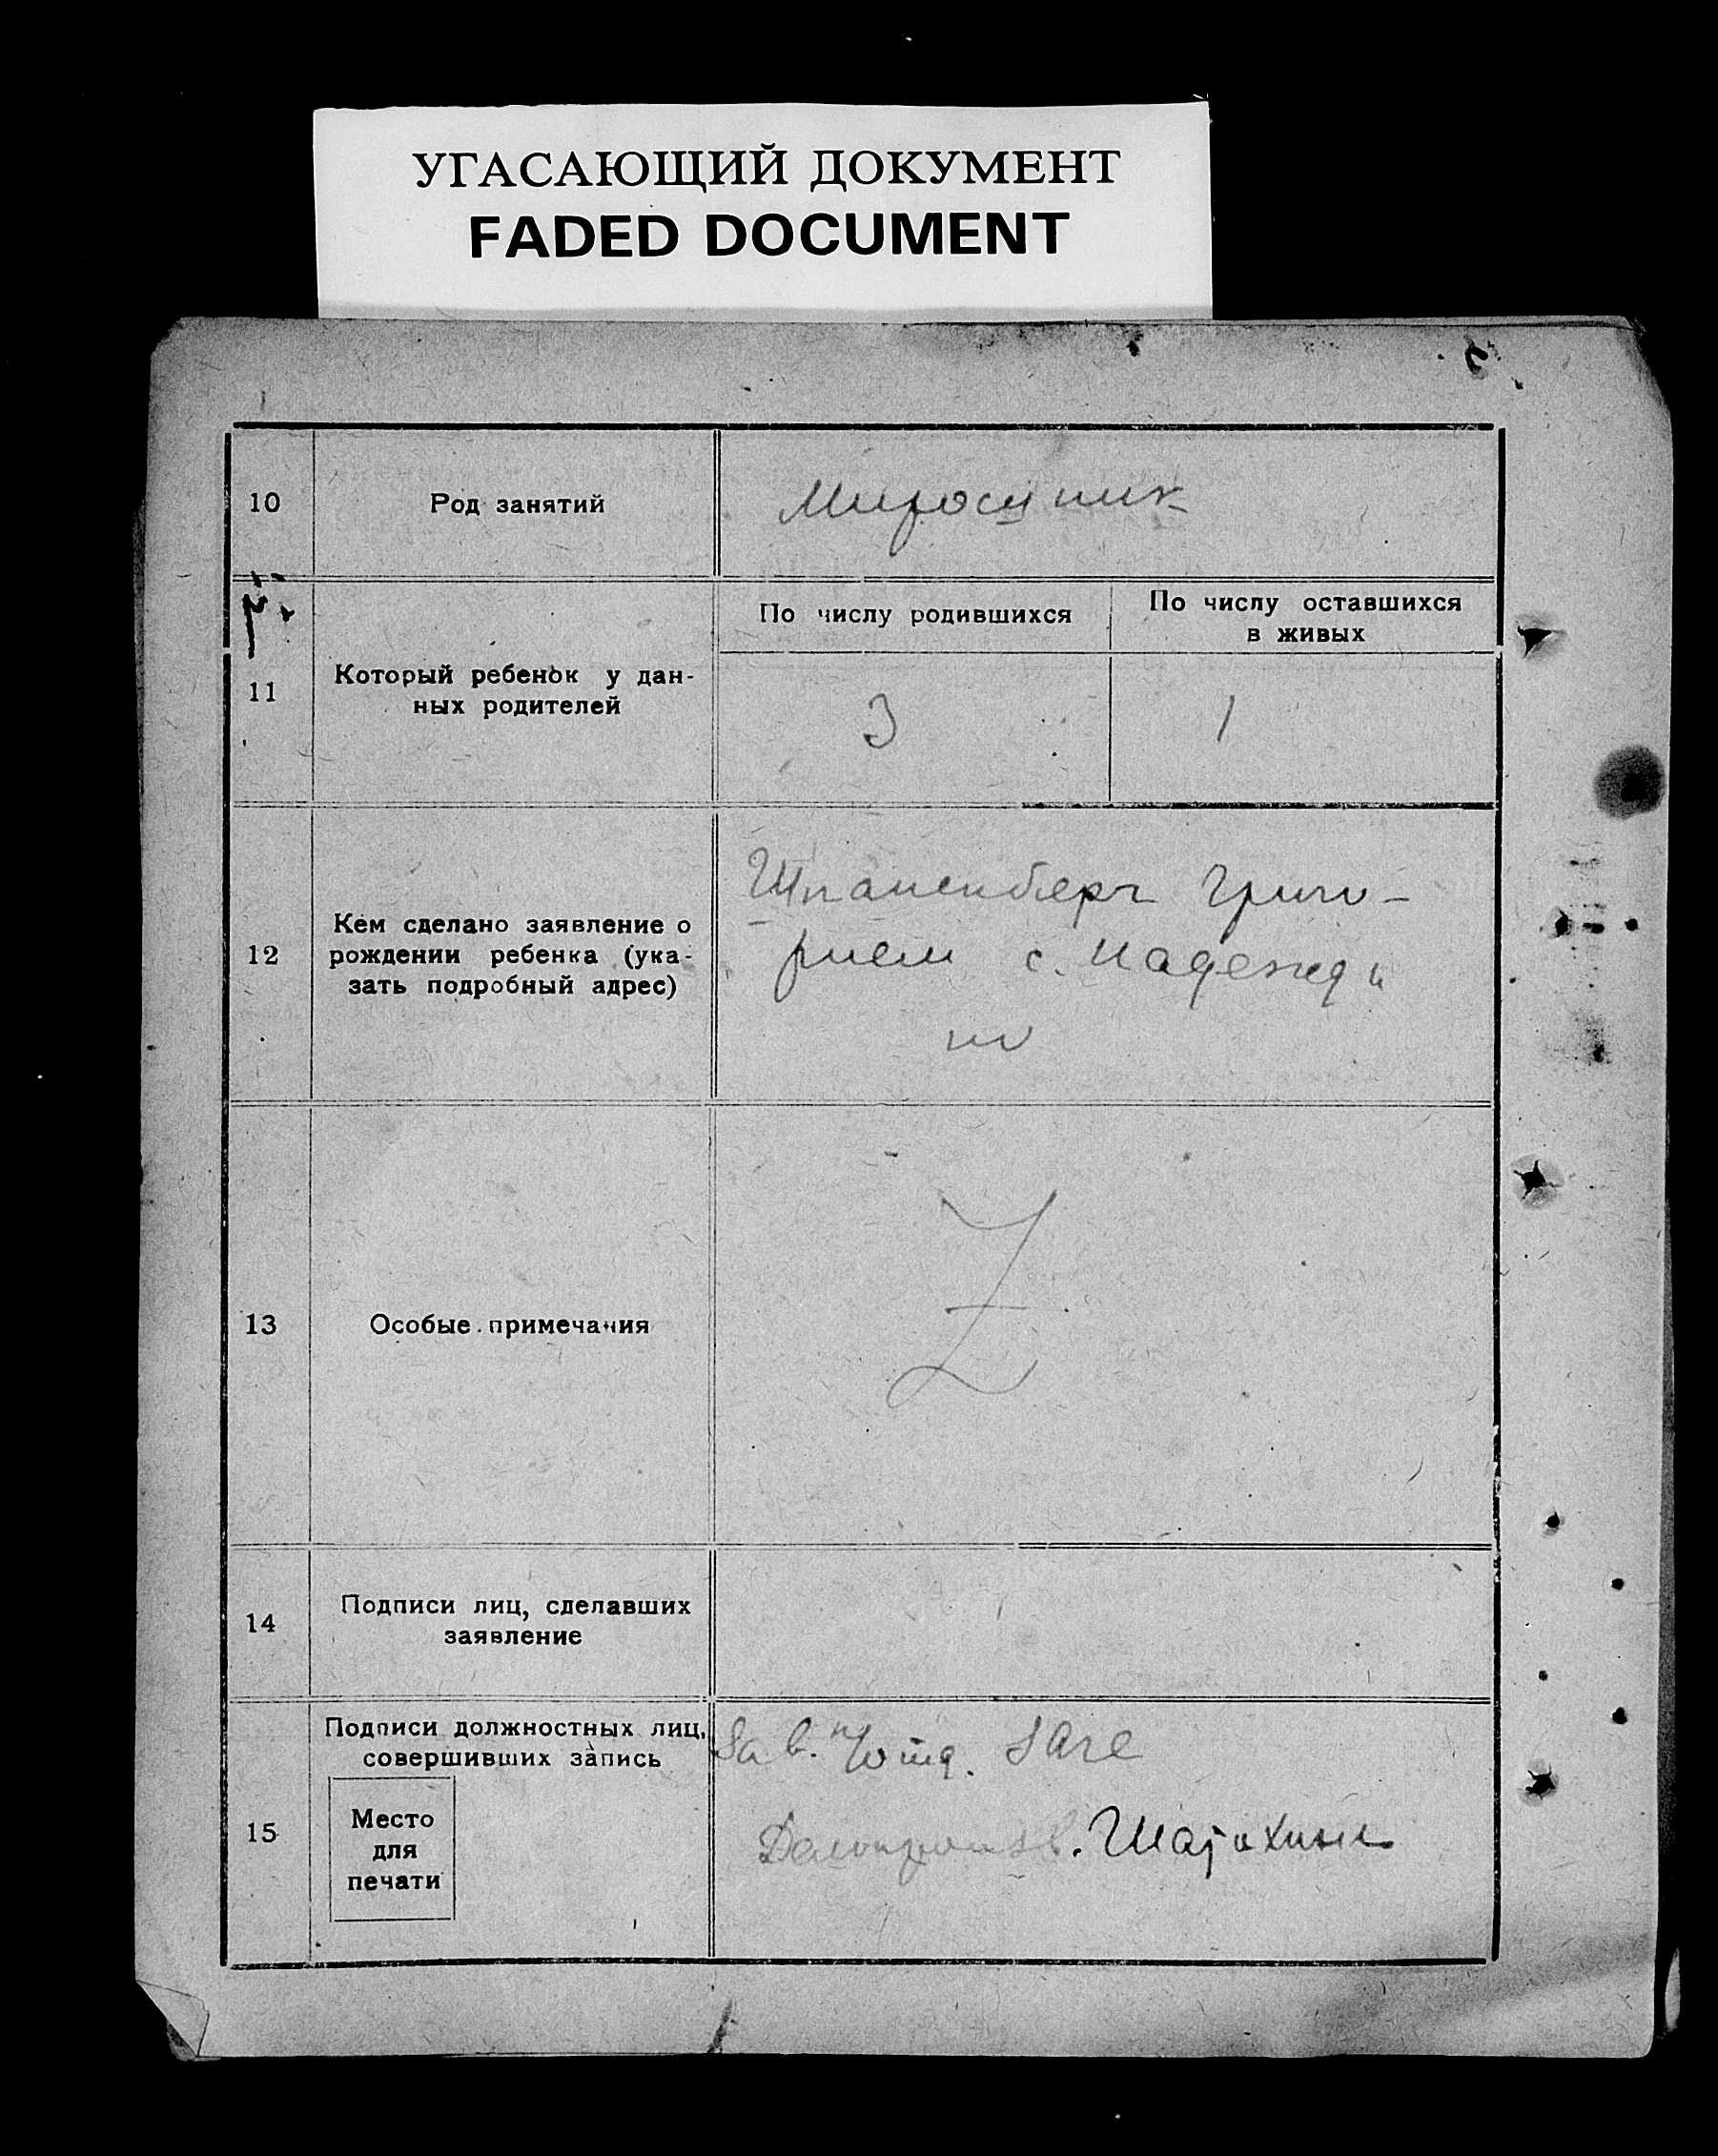 УГАСАЮЩИЙ ДОКУМЕНТ
FADED DOCUMENT
10
Род занятий
Мирошник
11
Который ребенок у дан-
ных родителей
По числу родившихся
По числу оставшихся
в живых
3
1
12
Кем сделано заявление о
рождении ребенка (ука-
зать подробный адрес)
Шпаненберг Григо-
рием с. Надежди
но
13
Особые примечания
Z
14
Подписи лиц, сделавших
заявление
15
Подписи должностных лиц,
совершивших запись
Место
для
печати
Зав.
Делопроизв.